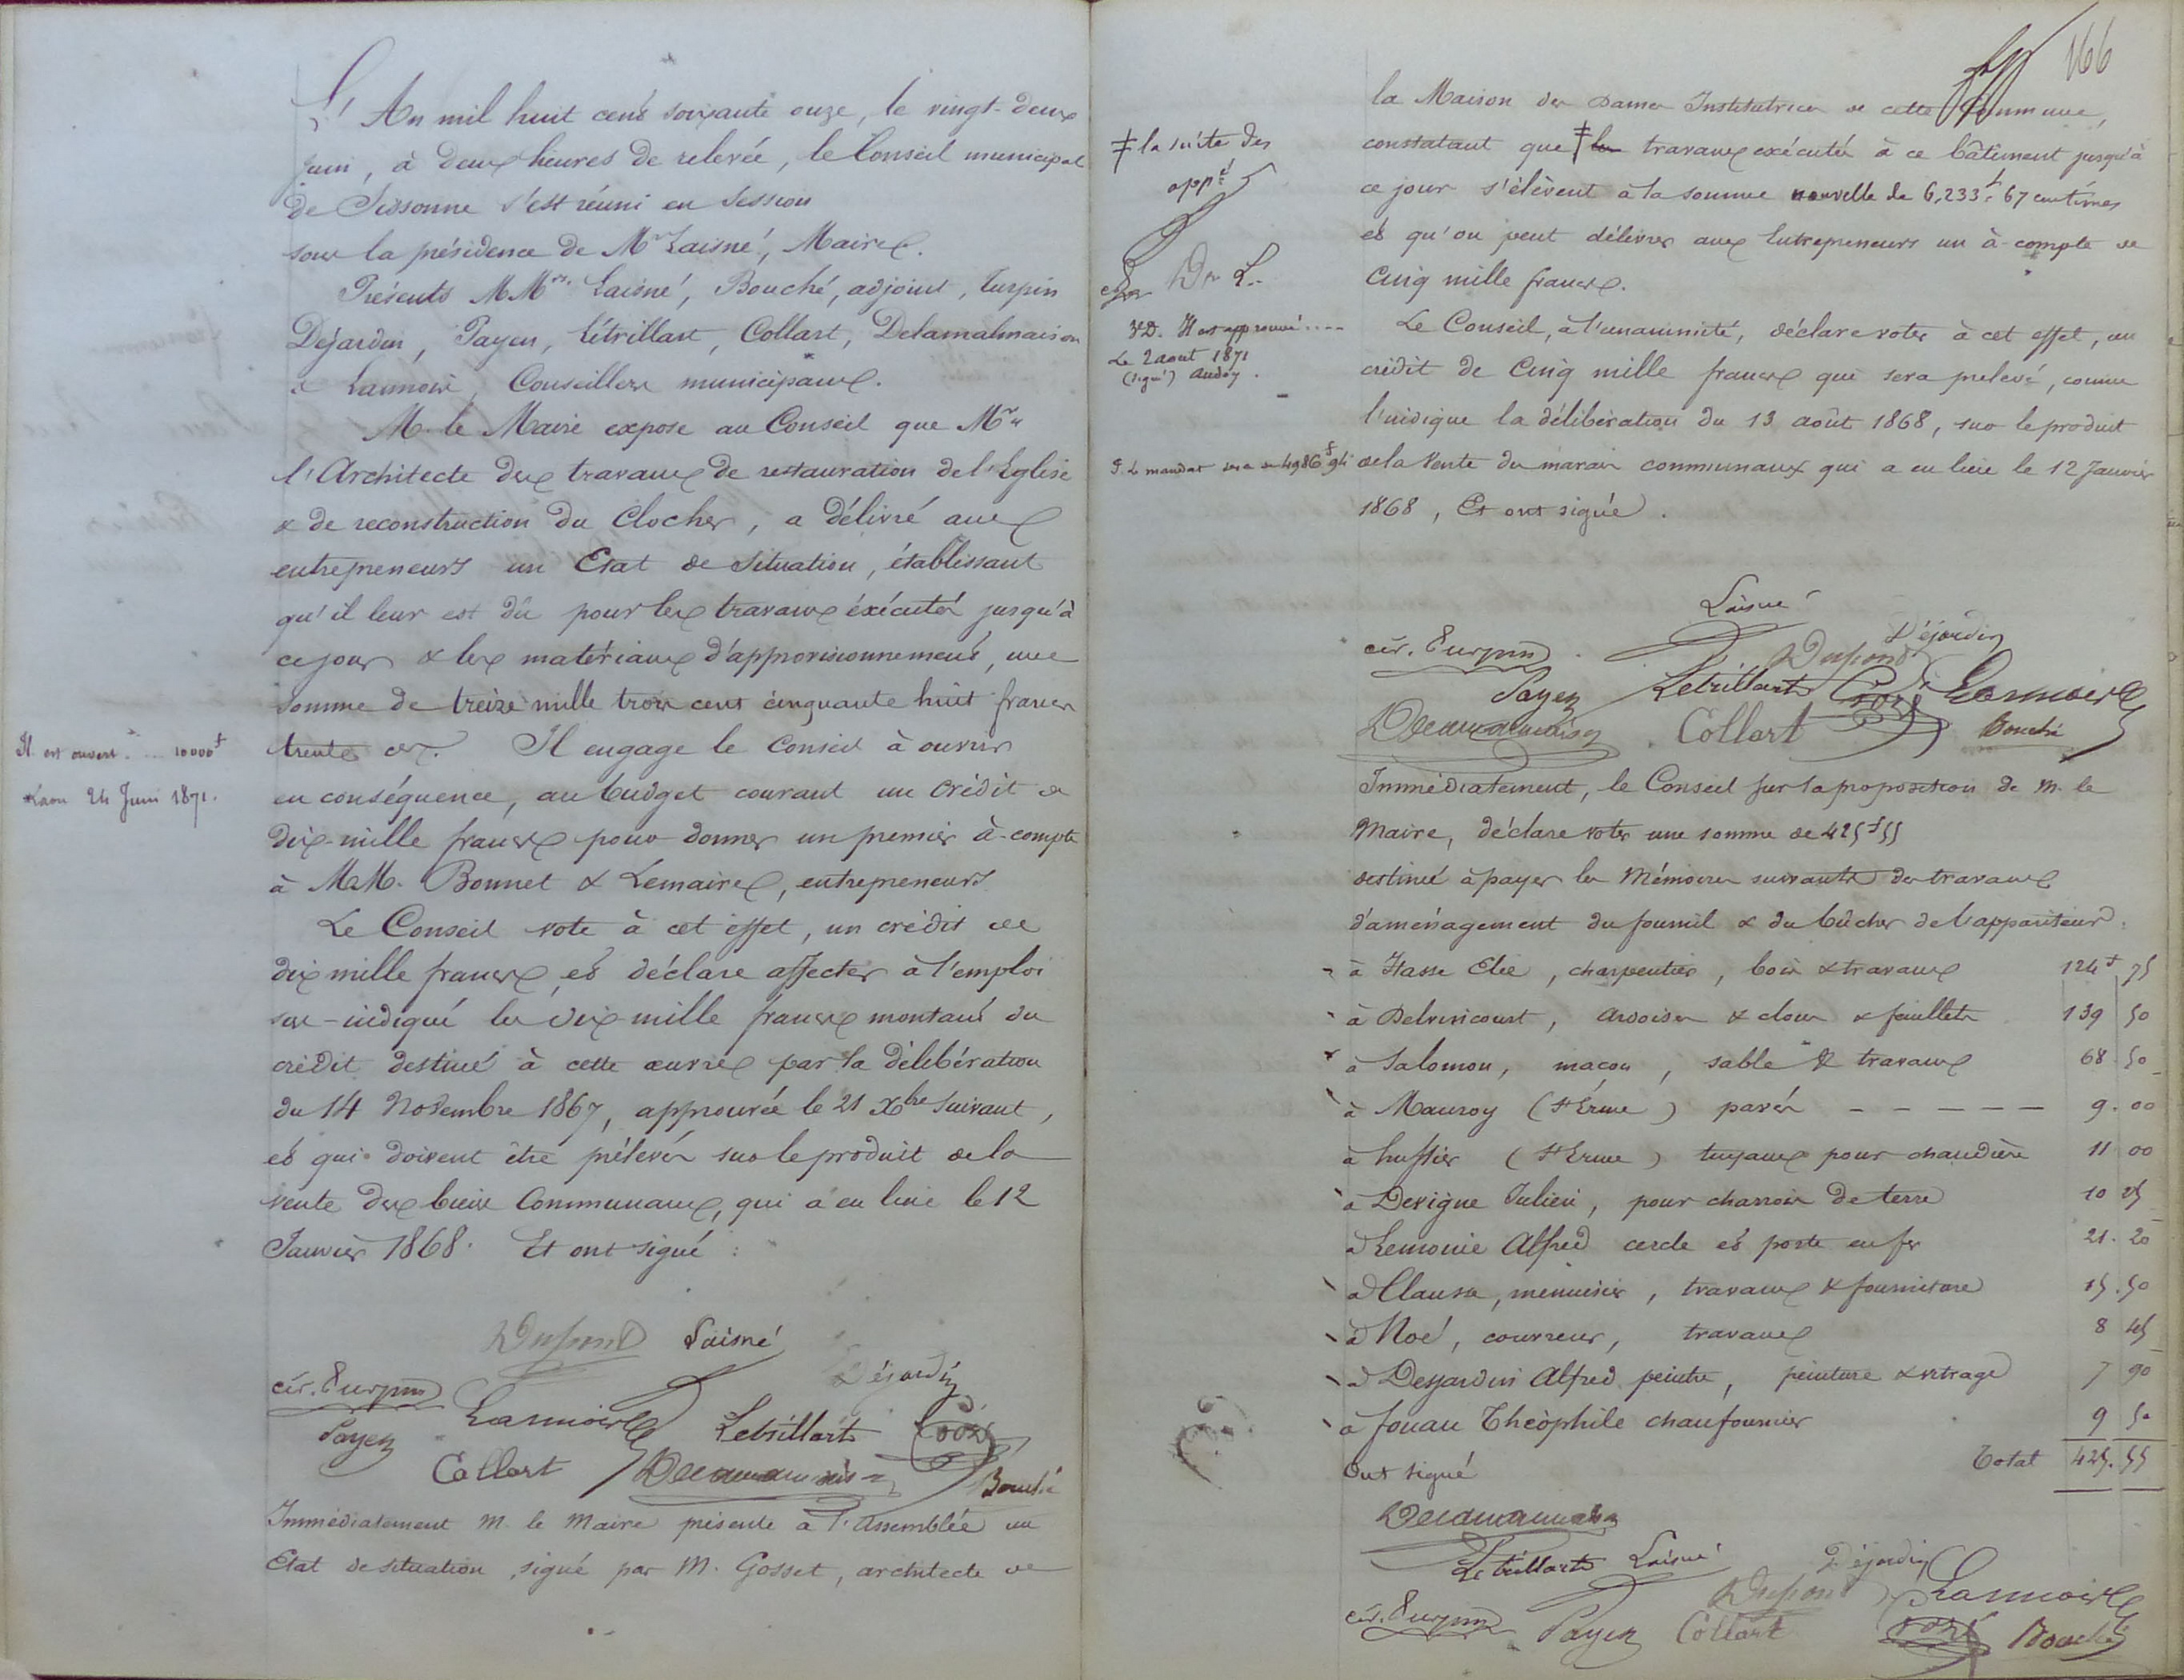 L'An mil huit cent soixante onze, le vingt-deux
Juin, à deux heures de relevée, le Conseil municipal
de Sissonne s'est réuni en Session
sous la présidence de Mr Laisné, Maire.
Présents MMrs. Laisné, Bouché, adjoint, Turpin
Dejardin, Payen, Létrillart, Collart, Delamalmaison
& Lannois, Conseillers municipaux.
M. le Maire expose au Conseil que Mr
l'Architecte des travaux de restauration de l'Eglise
& de reconstruction du Clocher, a délivré aux
entrepreneurs un Etat de Situation, établissant
qu'il leur est dû pour les travaux éxécutés jusqu'à
ce jour & les matériaux d'approvisionnement, une
somme de treize mille trois cent cinquante huit francs
Il est ouvert .... 10000f
trente cs. Il engage le Conseil à ouvrir
Laon 24 Juin 1871.
en conséquence, au budget courant un crédit de
dix-mille francs pour donner un premier à-compte
à M.M. Bonnet & Lemaire, entrepreneurs
Le Conseil vote à cet effet, un crédit de
dix mille francs, et déclare affecter à l'emploi
sus-indiqué les dix-mille francs montant du
crédit destiné à cette œuvre par la délibération
du 14 Novembre 1867, approuvée le 21 Xbre suivant,
et qui doivent être prélevés sur le produit de la
vente des biens Communaux, qui a eu lieu le 12
Janvier 1868. Et ont signé :
Dupont Laisné
Déjardin
cér. Turpin
Payen Lannois Letrillart
Collart Delamalmaison Bouché
Immédiatement M. le Maire présente à l'Assemblée un
Etat de situation, signé par M. Gosset, architecte de
166
la Maison des Dames Institutrices de cette Commune,
‡ la suite des
appé
constatant que ‡ les travaux exécutés à ce bâtiment jusqu'à
ce jour s'élèvent à la somme nouvelle de 6,233f. 67 centimes
et qu'on peut délivrer aux Entrepreneurs un à-compte de
D L.
Cinq mille francs.
V.D. Il est approuvé ....
Le 2 aout 1871
(signé) Audoy.
Le Conseil, à l'unanimité, déclare voter à cet effet, un
crédit de Cinq mille francs qui sera prélevé, comme
l'indique la délibération du 13 août 1868, sur le produit
Le mandat sera de 4986f 94
de la Vente du marais communaux qui a eu lieu le 12 Janvier
1868, Et ont signé.
Laisné
cér. Turpin Dupont Déjardin
Payen Letrillart Lannois
Delamalmaison Collart Bouché
Immédiatement, le Conseil sur la proposition de M. le
Maire, déclare voter une somme de 425f 55
destinée à payer les Mémoires suivants des travaux
d'aménagement du fournil & du bûcher de l'appariteur.
à Hasse Elie, charpentier, bois & travaux 124f 75
à Delvincourt, Ardoises & clous & feuillets 139 50
à Salomon, maçon, sable & travaux 68 50
à Mauroy (St Erme) pavés – – – – – 9. 00
à (St Erme) tuyaux pour chaudière 11 00
à Devigne Julien, pour charrois de terre 10 25
à Lemoine Alfred cercle et porte en fer 21. 20
à Clausse, menuisier, travaux & fourniture 15. 50
à Noé, couvreur, travaux 8 45
à Desjardin Alfred peintre, peinture & vitrage 7 90
à Fouan Théophile chaufournier 9 50
Ont signé Total 425. 55
Delamalmaison
Letrillart Laisné Déjardin
cér. Turpin Payen Dupont Lannois
Collart Bouché